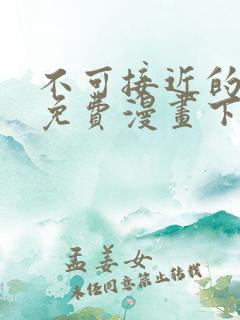 不可接近的
免費漫畫下
孟姜女
未经同意禁止转载